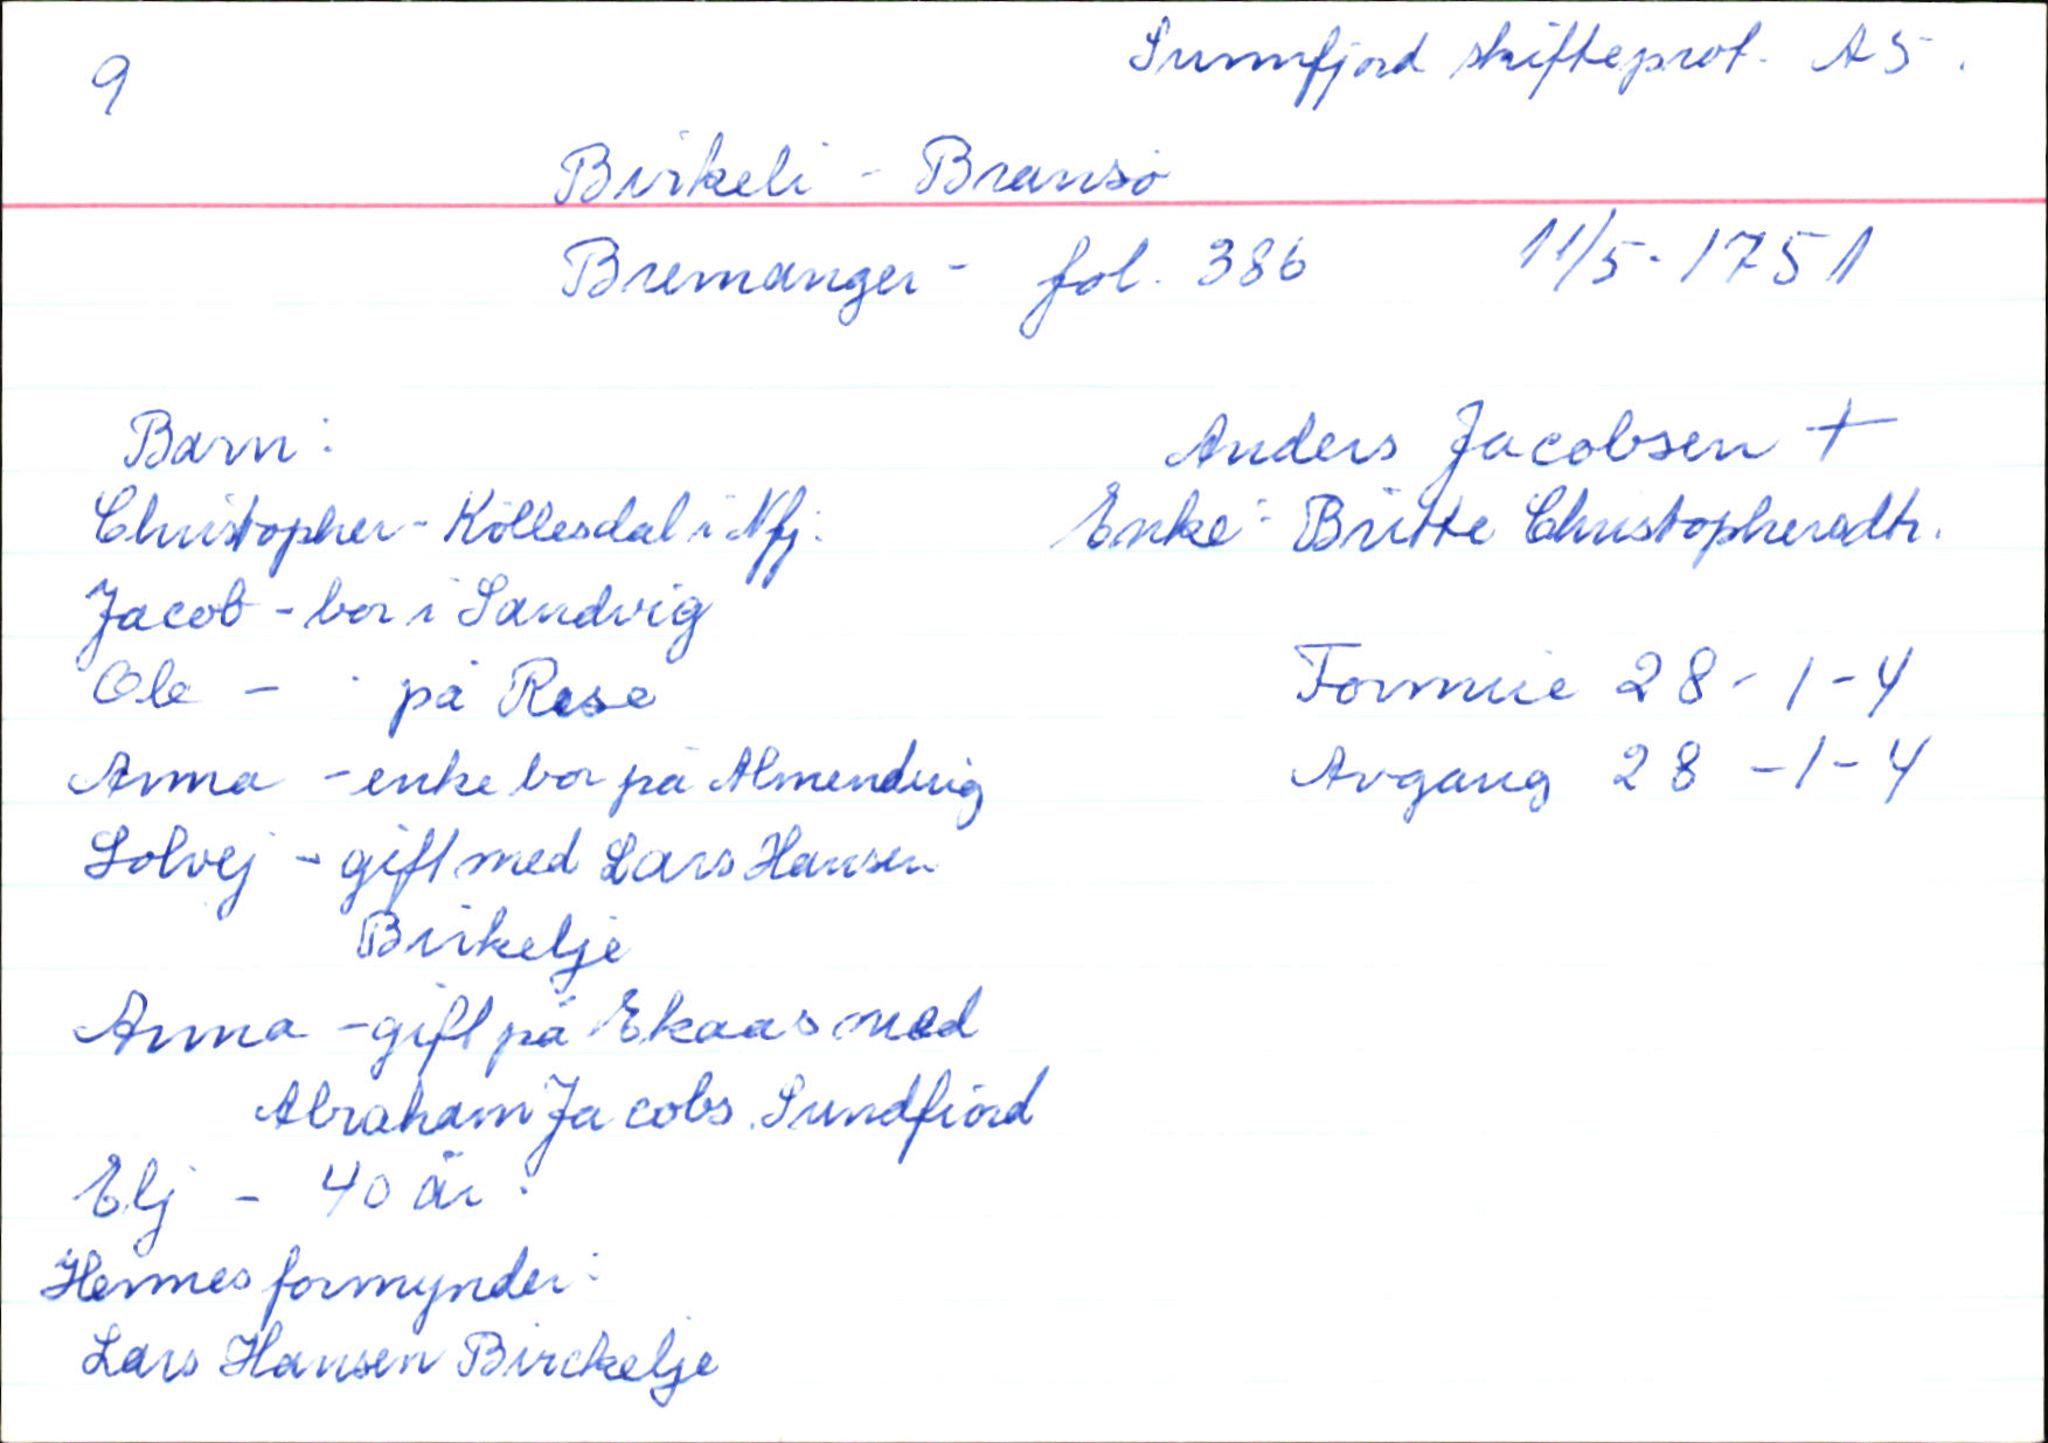 9
Sunnfjord skifteprot. A5.
Birkeli - Bransø
Bremanger - fol. 386 11/5-1751
Barn:
Christopher - Köllesdal i Nfj.
Jacob - bor i Sandvig
Ole - " på Rise
Anna - enke bor på Almenduig
Solvej - gift med Lars Hansen
Birkelje
Anna - gift på Ekaas med
Abraham Jacobs. Sundfiord
Elj - 40 år.
Hennes formynder:
Lars Hansen Birckelje
Anders Jacobsen +
Enke: Britte Christophersdtr.
Formue 28-1-4
Avgang 28-1-4